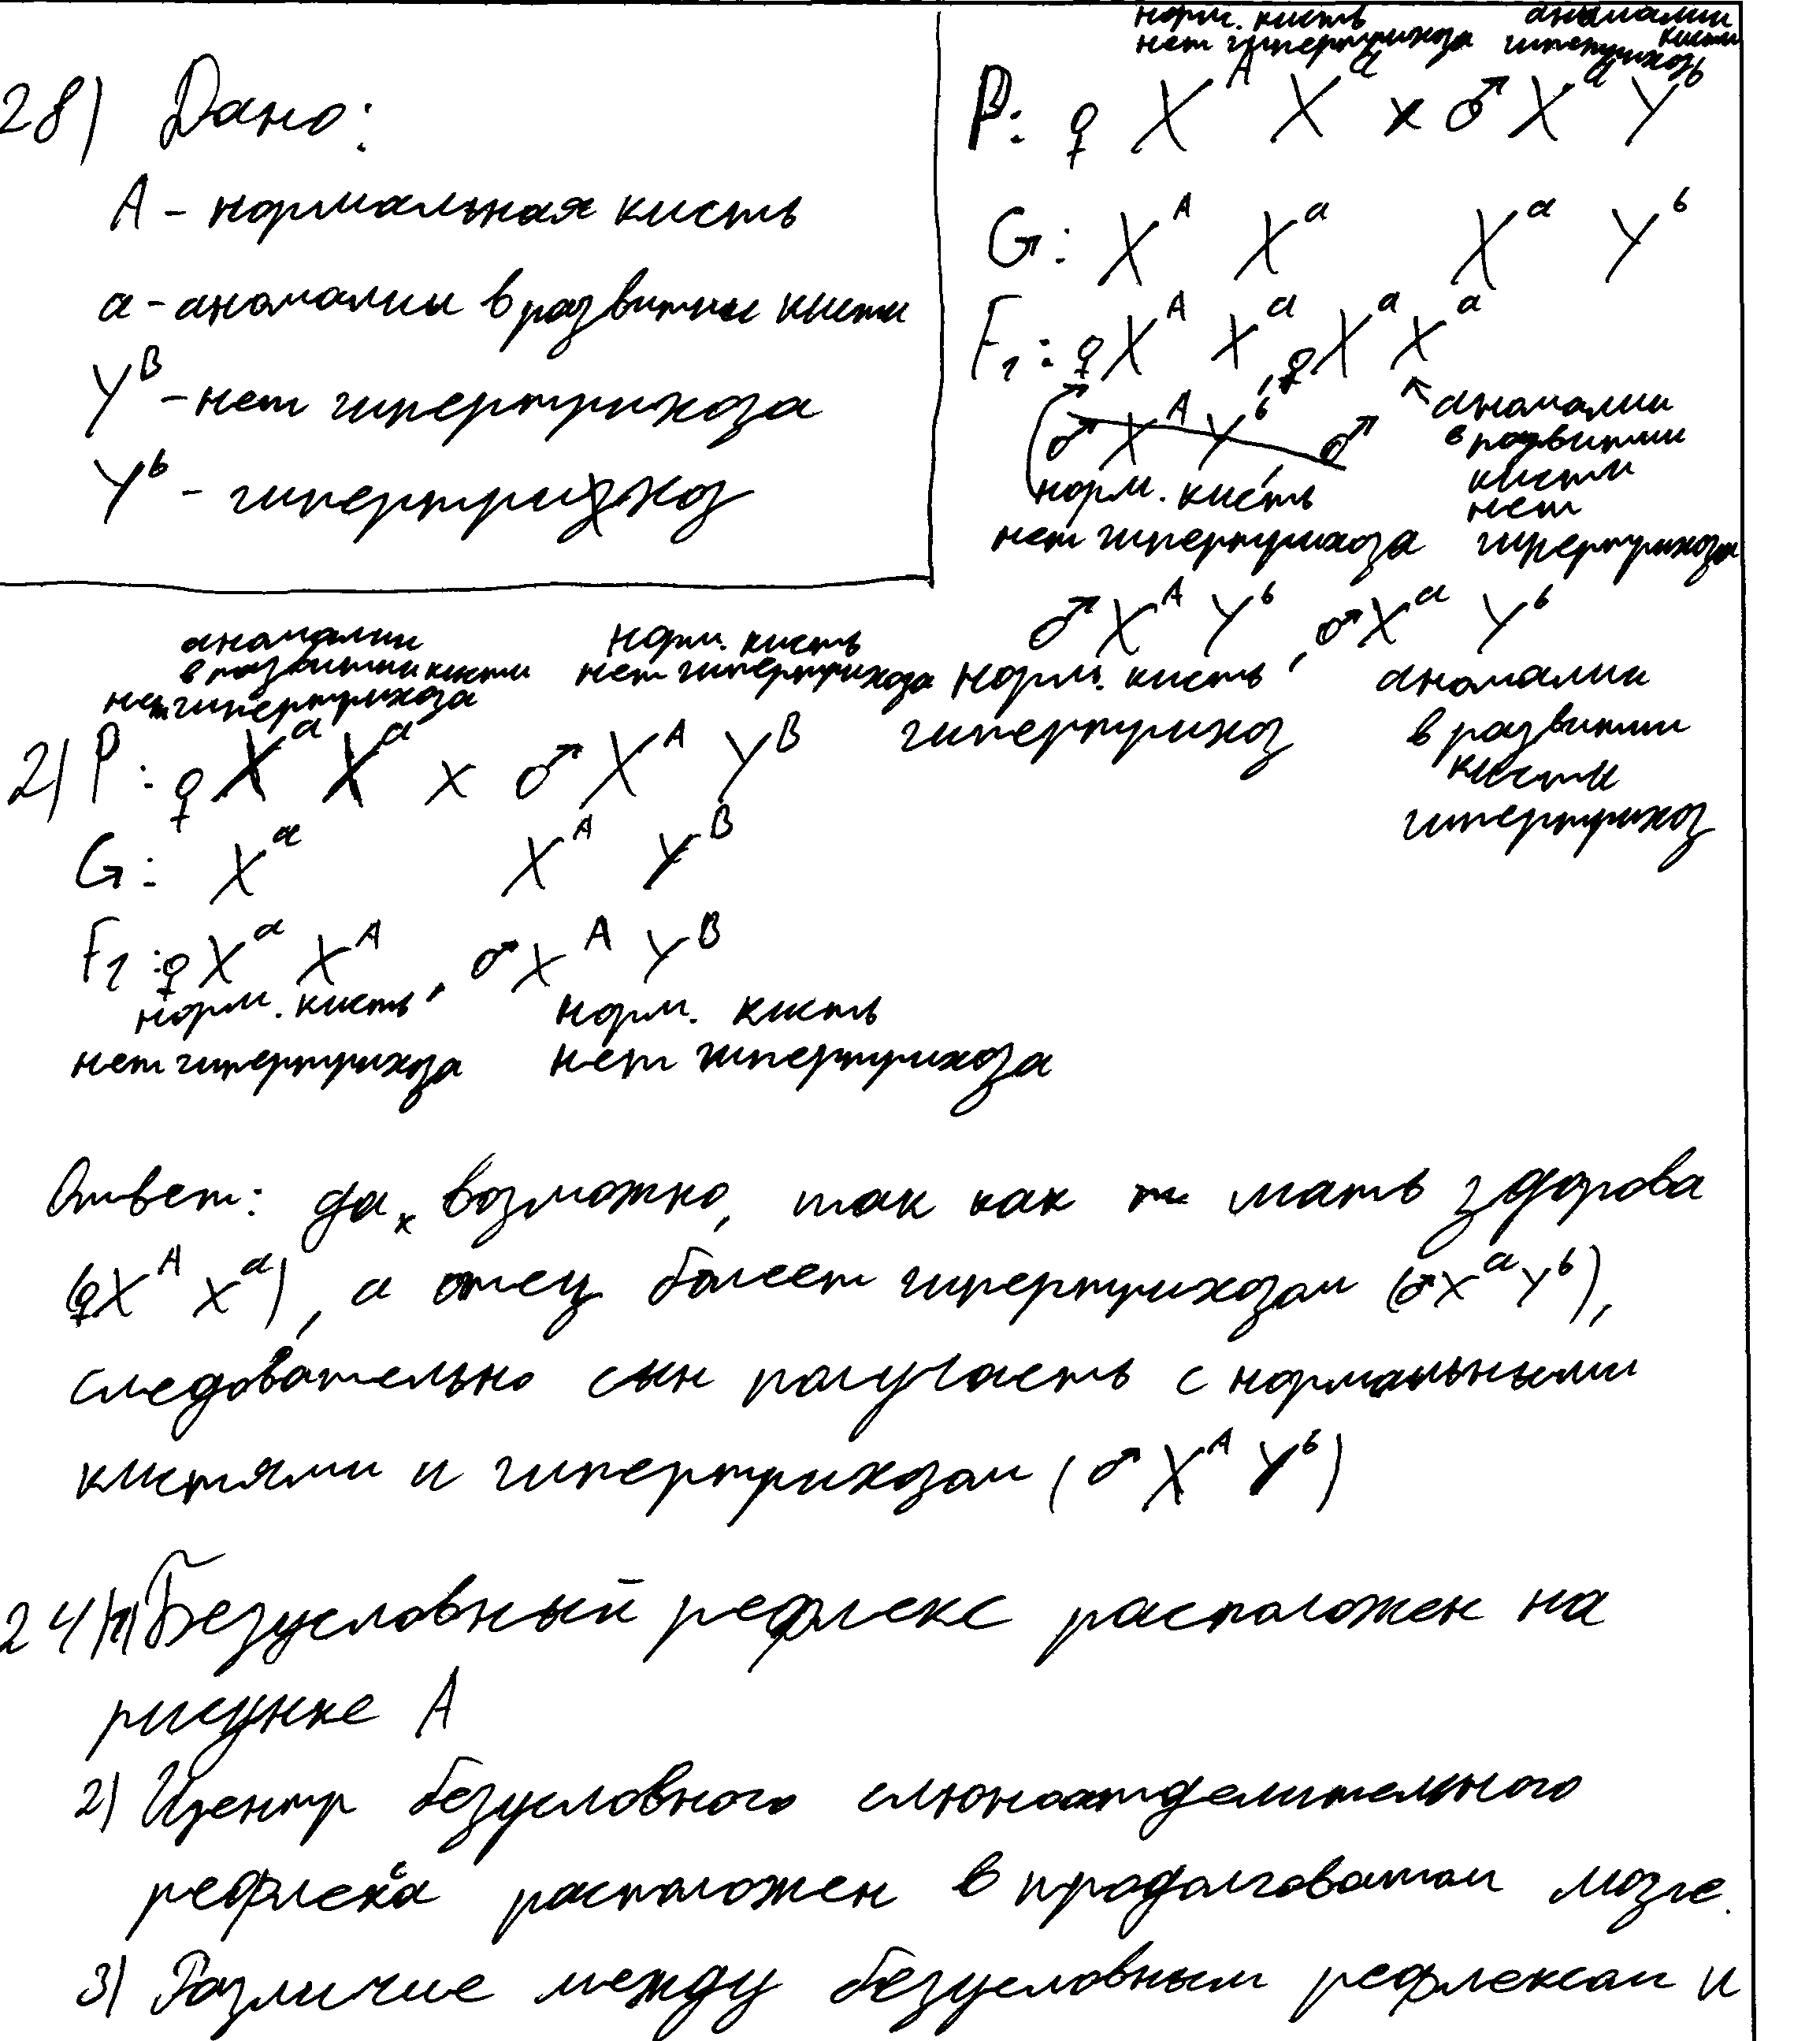 28) Дано:
А - нормальная кисть
а - аномалии в развитии кисти
Y^B - нет гипертрихоза
Y^b - гипертрихоз
норм. кисть
нет гипертрихоза
аномалии
кисти
гипертрихоз
P: ♀ X^A X^a x ♂ X^a Y^b
G: X^A X^a X^a Y^b
F1: ♀ X^A X^a, ♀ X^a X^a
♂ X^A Y^b, ♂
норм. кисть
нет гипертрихоза
аномалии
в развитии
кисти
нет
гипертрихоза
♂ X^A Y^b, ♂ X^a Y^b
норм. кисть
гипертрихоз
аномалии
в развитии
кисти
гипертрихоз
аномалии
в развитии кисти
нет гипертрихоза
норм. кисть
нет гипертрихоза
2) P: ♀ X^a X^a x ♂ X^A Y^B
G: X^a X^A Y^B
F1: ♀ X^a X^A, ♂ X^A Y^B
норм. кисть
нет гипертрихоза
норм. кисть
нет гипертрихоза
Ответ: да, возможно, так как мать здорова
(♀X^A X^a), а отец болеет гипертрихозом (♂X^a Y^b),
следовательно сын получаеть с нормальными
кистями и гипертрихозом (♂ X^A Y^b)
24) 1) Безусловный рефлекс расположен на
рисунке А
2) Центр безусловного слюноотделительного
рефлекса расположен в продолговатом мозге.
3) Различие между безусловным рефлексом и